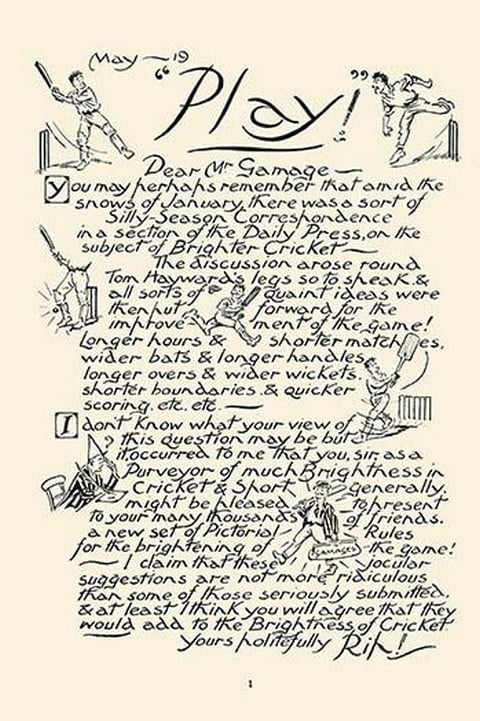 May — 19
"Play!"
Dear Mr Gamage —
You may perhaps remember that amid the
snows of January, there was a sort of
Silly-Season Correspondence
in a section of the Daily Press, on the
subject of Brighter Cricket —
The discussion arose round
Tom Hayward's legs so to speak. &
all sorts of quaint ideas were
then put forward for the
improvement of the game!
Longer hours & shorter matches,
wider bats & longer handles
longer overs & wider wickets.
shorter boundaries. & quicker
scoring. etc. etc. —
I don't know what your view of
? this question may be but
it occurred to me that you, sir, as a
Purveyor of much Brightness in
Cricket & Sport generally,
might be pleased to present
to your many thousands of friends.
a new set of Pictorial Rules
for the brightening of the game!
— I claim that these jocular
suggestions are not more ridiculous
than some of those seriously submitted,
& at least I think you will agree that they
would add to the Brightness of Cricket
Yours politefully Rip!
GAMAGES
1